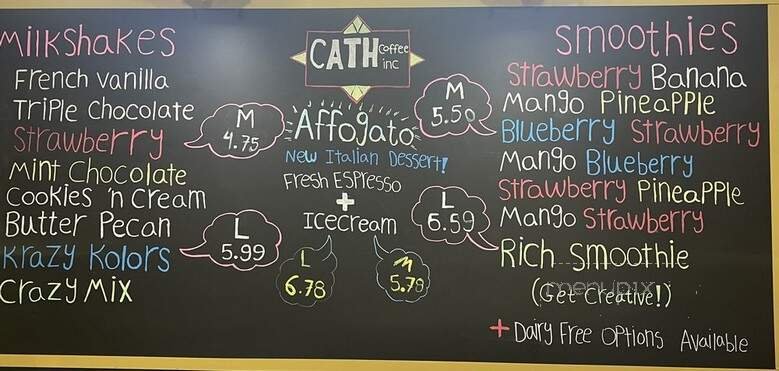 Milkshakes
French Vanilla
Triple Chocolate
Strawberry
Mint Chocolate
Cookies 'n Cream
Butter Pecan
Krazy Kolors
Crazy Mix
M
4.75
L
5.99
CATH Coffee
inc
Affogato
New Italian Dessert!
Fresh Espresso
+
Icecream
L
6.78
M
5.78
Smoothies
Strawberry Banana
Mango Pineapple
Blueberry Strawberry
Mango Blueberry
Strawberry Pineapple
Mango Strawberry
Rich Smoothie
(Get Creative!)
+ Dairy Free Options Available
M
5.50
L
6.59
menupix